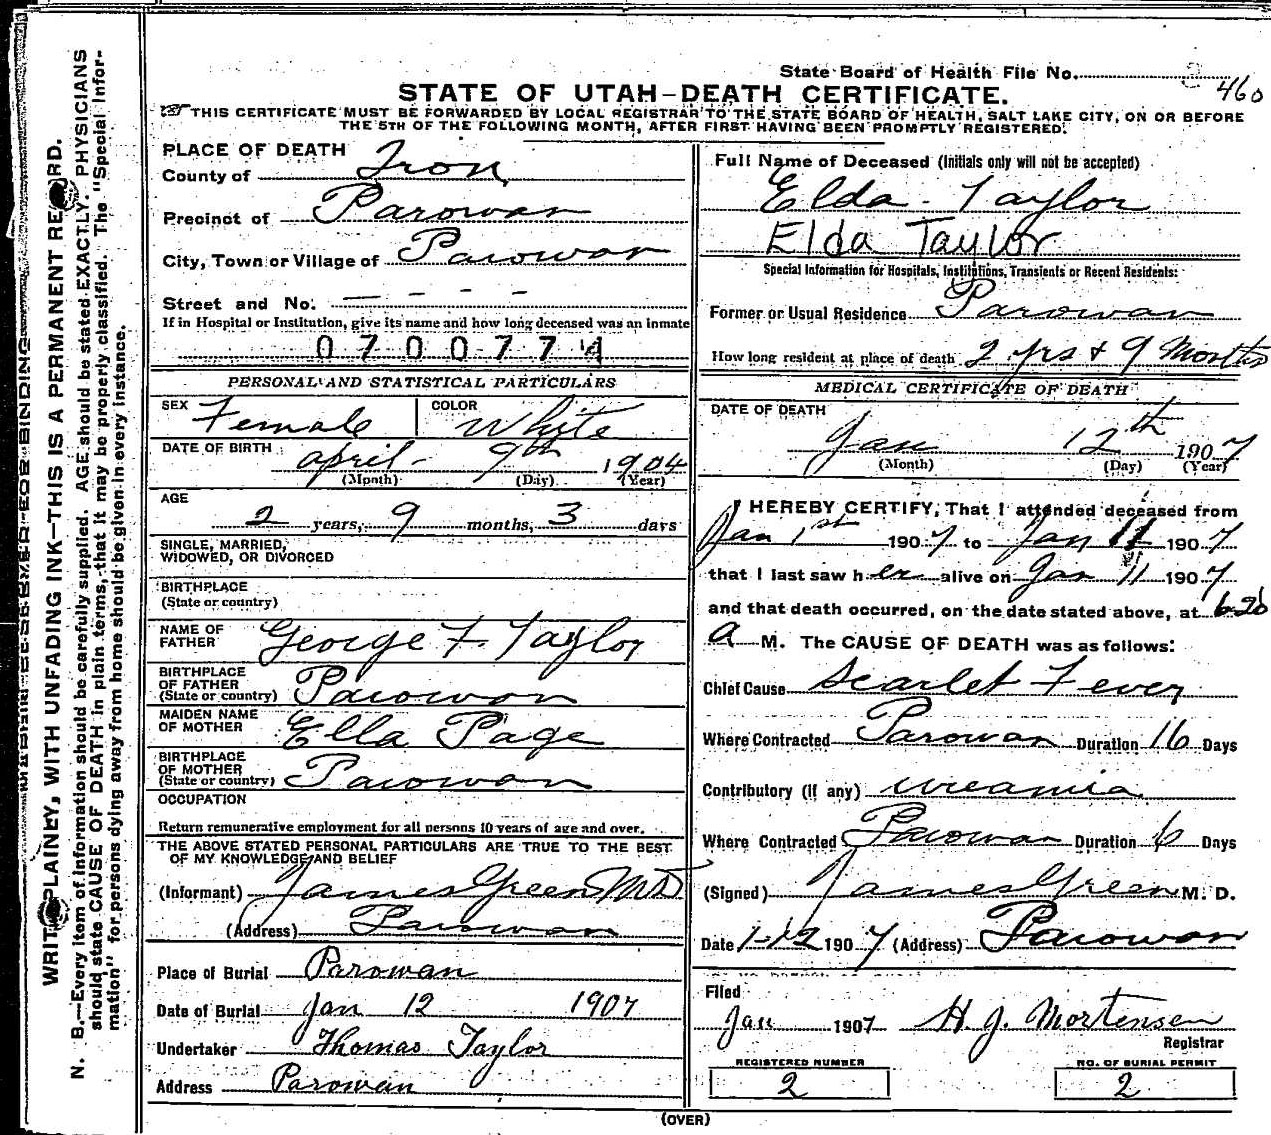 State Board of Health File No. 460
STATE OF UTAH—DEATH CERTIFICATE.
THIS CERTIFICATE MUST BE FORWARDED BY LOCAL REGISTRAR TO THE STATE BOARD OF HEALTH, SALT LAKE CITY, ON OR BEFORE
THE 5TH OF THE FOLLOWING MONTH, AFTER FIRST HAVING BEEN PROMPTLY REGISTERED.
PLACE OF DEATH
County of Iron
Precinct of Parowan
City, Town or Village of Parowan
Street and No. — - - -
If in Hospital or Institution, give its name and how long deceased was an inmate
070077
PERSONAL AND STATISTICAL PARTICULARS
SEX Female COLOR White
DATE OF BIRTH April 9th 1904
(Month) (Day) (Year)
AGE
2 years, 9 months, 3 days
SINGLE, MARRIED,
WIDOWED, OR DIVORCED
BIRTHPLACE
(State or country)
NAME OF
FATHER George F. Taylor
BIRTHPLACE
OF FATHER
(State or country) Parowan
MAIDEN NAME
OF MOTHER Ella Page
BIRTHPLACE
OF MOTHER
(State or country) Parowan
OCCUPATION
Return remunerative employment for all persons 10 years of age and over.
THE ABOVE STATED PERSONAL PARTICULARS ARE TRUE TO THE BEST
OF MY KNOWLEDGE AND BELIEF
(Informant) James Green MD
(Address) Parowan
Place of Burial Parowan
Date of Burial Jan 12 1907
Undertaker Thomas Taylor
Address Parowan
Full Name of Deceased (Initials only will not be accepted)
Elda Taylor
Elda Taylor
Special Information for Hospitals, Institutions, Transients or Recent Residents:
Former or Usual Residence Parowan
How long resident at place of death 2 yrs + 9 Months
MEDICAL CERTIFICATE OF DEATH
DATE OF DEATH
Jan 12th 1907
(Month) (Day) (Year)
I HEREBY CERTIFY, That I attended deceased from
Jan 1st 1907 to Jan 11 1907
that I last saw her alive on Jan 11 1907
and that death occurred, on the date stated above, at 6-20
a M. The CAUSE OF DEATH was as follows:
Chief Cause Scarlet Fever
Where Contracted Parowan Duration 16 Days
Contributory (if any) ureamia
Where Contracted Parowan Duration 6 Days
(Signed) James Green M. D.
Date 1-12 1907 (Address) Parowan
Filed
Jan 1907 H. J. Mortensen
Registrar
REGISTERED NUMBER
2
NO. OF BURIAL PERMIT
2
(OVER)
MARGIN RESERVED FOR BINDING.
WRITE PLAINLY, WITH UNFADING INK—THIS IS A PERMANENT RECORD.
N. B.—Every item of information should be carefully supplied. AGE should be stated EXACTLY. PHYSICIANS
should state CAUSE OF DEATH in plain terms, that it may be properly classified. The "Special Infor-
mation" for persons dying away from home should be given in every instance.